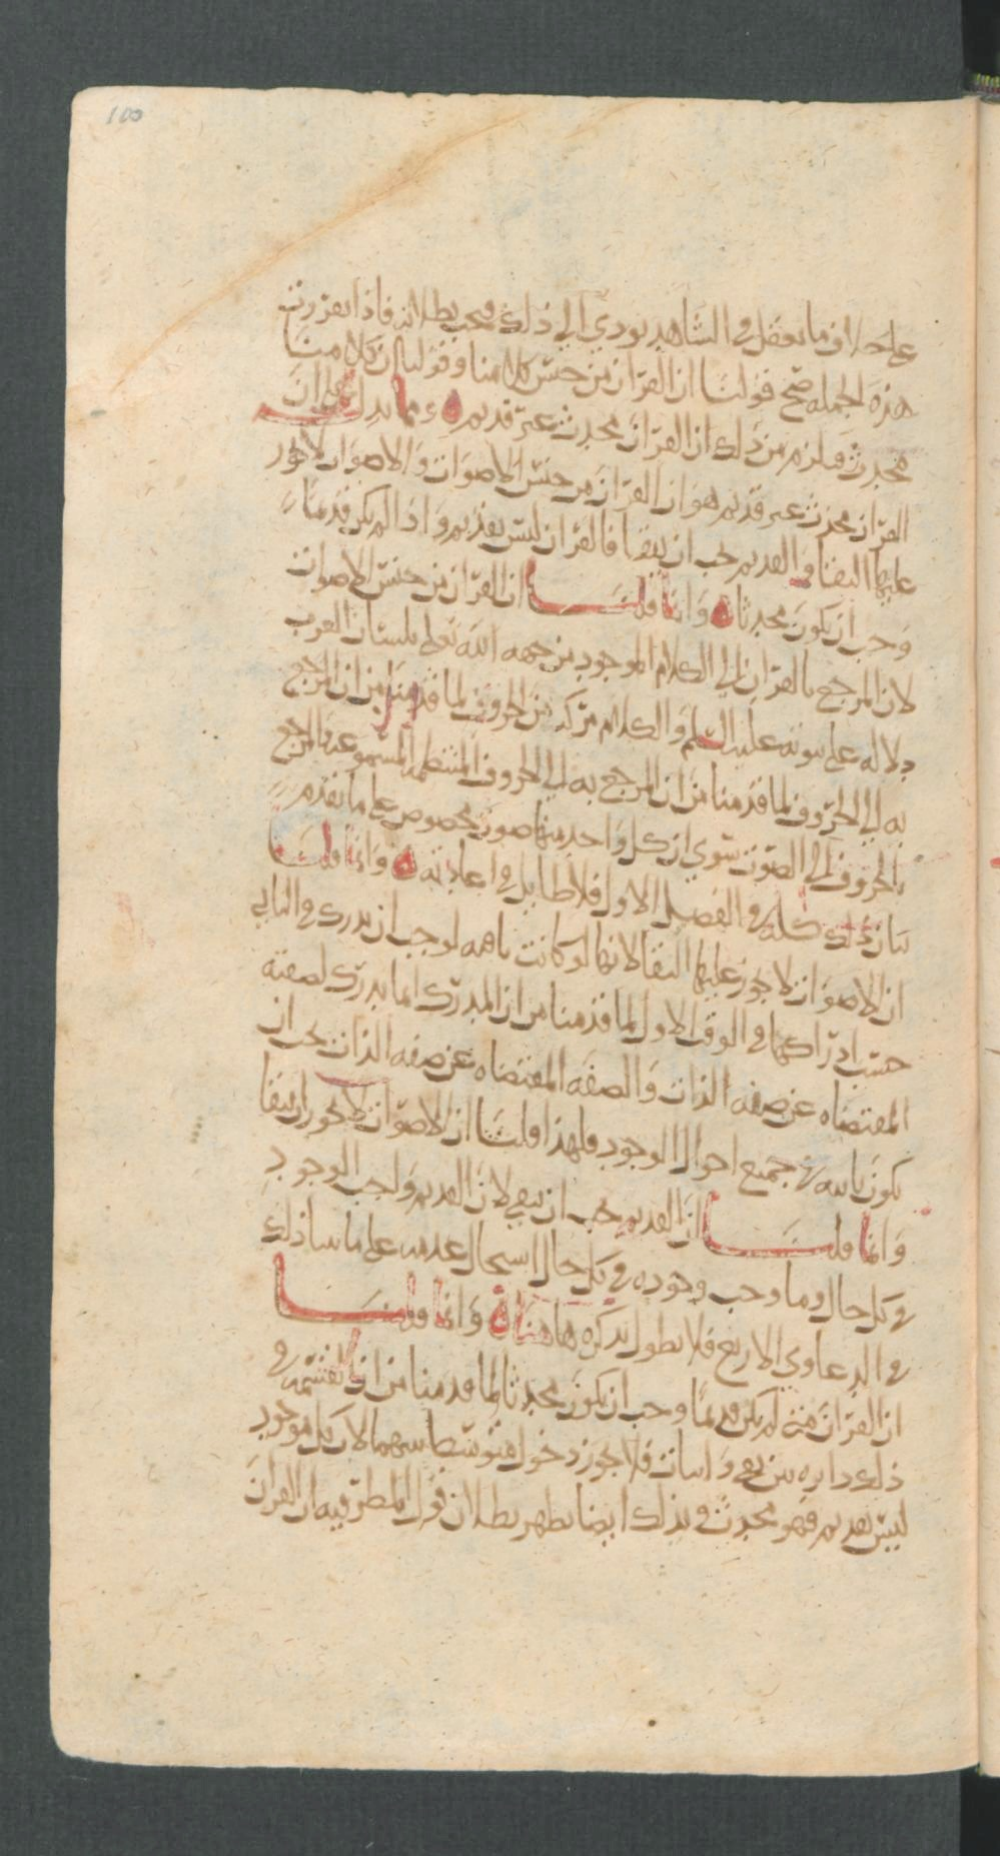 100
على خلاف ما نعقل في الشاهد يودي الى ذلك فيجب بطلانه فاذا تقررت
هذه الجمله صح قولنا ان القران من جنس كلامنا وقولنا ان كلامنا
محدث فيلزم من ذلك ان القران محدث غير قديم ومما يدل على ان
القران محدث غير قديم هو ان القران من جنس الاصوات والاصوات لا يجوز
عليها البقا والقديم يجب ان يبقا فالقران ليس بقديم واذا لم يكن قديما
وجب ان يكون محدثا وانما قلنا ان القران من جنس الاصوات
لان المرجع بالقران الى الكلام الموجود من جهه الله تعالى بلسان العرب
دلاله على نبوته عليه السلم والكلام مركب من الحروف لما قدمنا من ان المرجع
به الى الحروف لما قدمنا من ان المرجع به الى الحروف المنتظمه المسموعه والمرجع
بالحروف الى الصوت سوى ان كل واحد منها صوت مخصوص على ما تقدم
بيان ذلك كله في الفصل الاول فلا طايل في اعادته وانما قلنا
ان الاصوات لا يجوز عليها البقا لانها لو كانت باقيه لوجب ان تدرك في الثاني
حسب ادراكها في الوقت الاول لما قدمنا من ان المدرك انما يدرك لصفته
المقتضاه عن صفه الذات والصفه المقتضاه عن صفه الذات يجب ان
تكون ثابته في جميع احوال الوجود فلهذا قلنا ان الاصوات لا يجوز ان تبقا
وانما قلنا ان القديم يجب ان يبقى لان القديم واجب الوجود
في كل حال وما وجب وجوده في كل حال استحال عدمه على ما بينا ذلك
في الدعاوي الاربع فلا نطول بذكره هاهنا وانما قلنا
ان القران متى لم يكن قديما وجب ان يكون محدثا لما قدمنا من ان القسمه في
ذلك دايره بين نفي واثبات فلا يجوز دخول متوسط بينهما لان كل موجود
ليس بقديم فهو محدث وبذلك ايضا يظهر بطلان قول المطرفيه ان القران